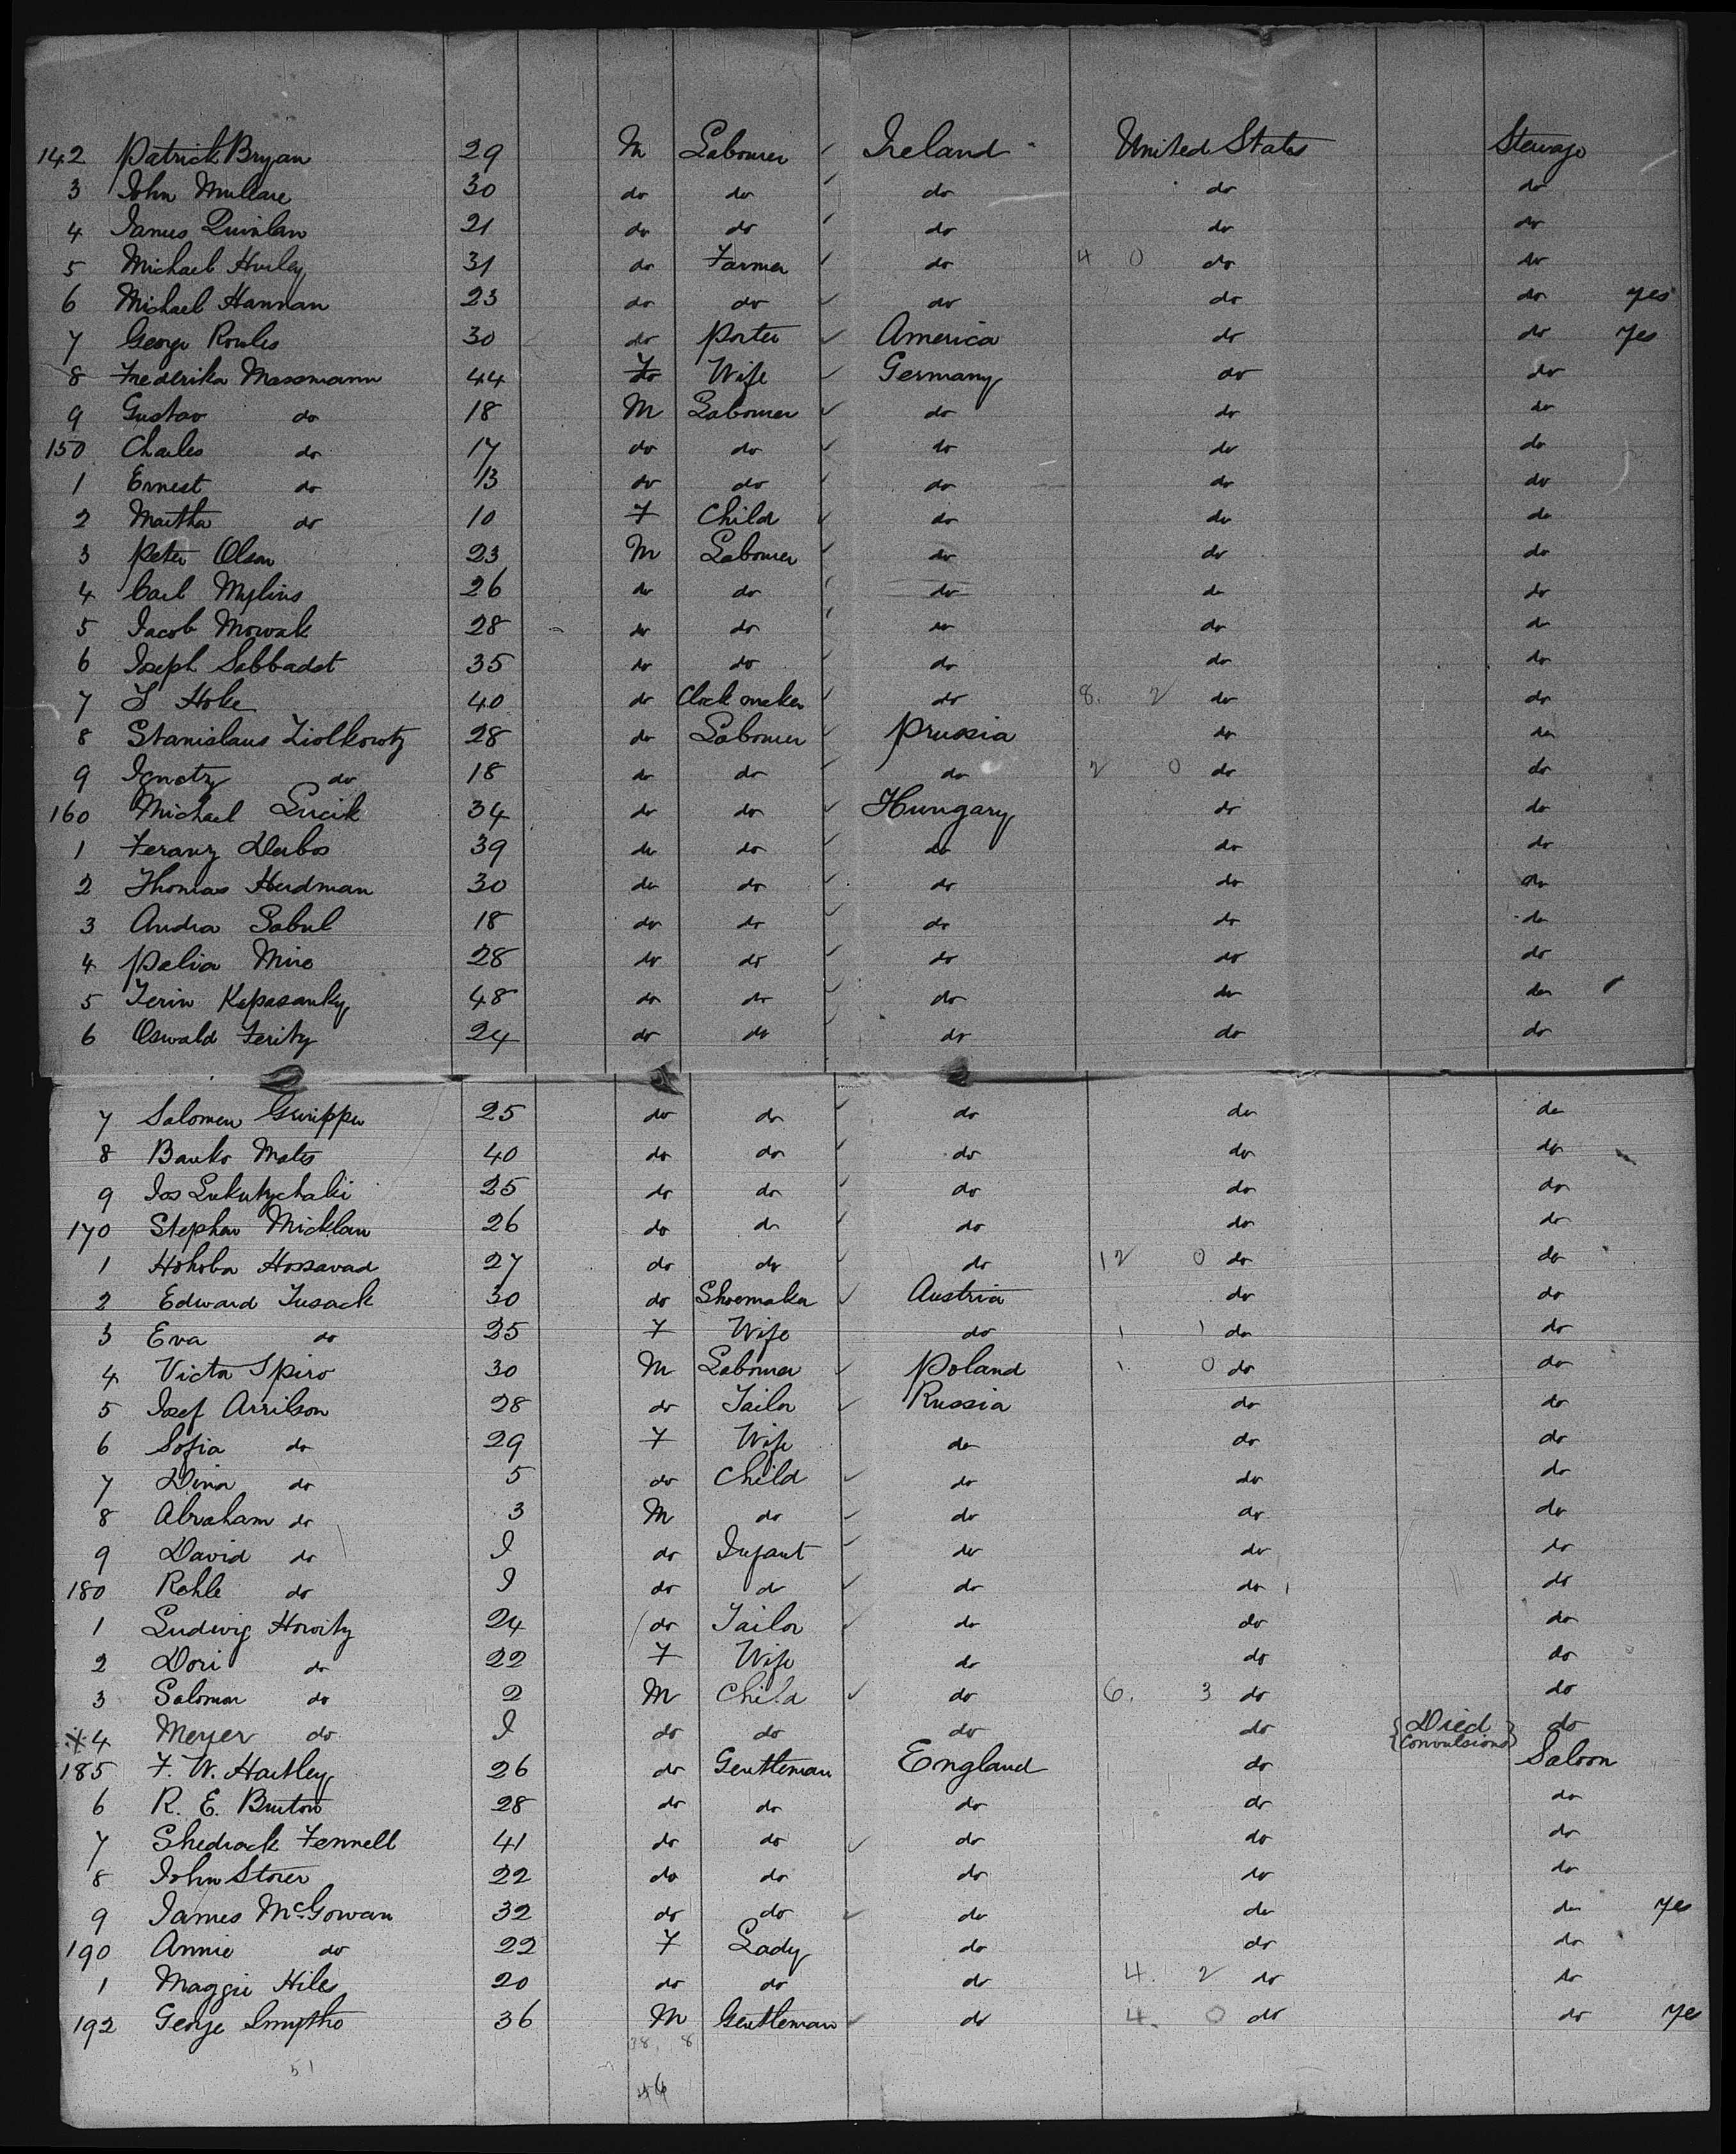 142 Patrick Bryan 29 M Labourer Ireland United States Steerage
3 John Mullare 30 do do do do do
4 James Quinlan 21 do do do do do
5 Michael Hurley 31 do Farmer do 4 0 do do
6 Michael Hannan 23 do do do do do yes
7 George Rowles 30 do Porter America do do yes
8 Frederika Massmann 44 F Wife Germany do do
9 Gustav do 18 M Labourer do do do
150 Charles do 17 do do do do do
1 Ernest do 13 do do do do do
2 Martha do 10 F Child do do do
3 Peter Olson 23 M Labourer do do do
4 Carl Mylius 26 do do do do do
5 Jacob Mowak 28 do do do do do
6 Joseph Sabbadat 35 do do do do do
7 Hoke 40 do Clock maker do 8. 2 do do
8 Stanislaus Ziolkowtz 28 do Labourer Prussia do do
9 Ignatz do 18 do do do 2 0 do do
160 Michael Lucik 34 do do Hungary do do
1 Feranz Derbos 39 do do do do do
2 Thomas Herdman 30 do do do do do
3 Andra Sabul 18 do do do do do
4 Palia Miro 28 do do do do do
5 Ferin Kapasanky 48 do do do do do
6 Oswald Ferity 24 do do do do do
7 Salomen 25 do do do do do
8 Banko Mates 40 do do do do do
9 Jos Lukutychaki 25 do do do do do
170 Stephan Micklan 26 do do do do do
1 Hohoba Hossavad 27 do do do 12 0 do do
2 Edward Tusack 30 do Shoemaker Austria do do
3 Eva do 25 F Wife do 1 1 do do
4 Victor Spiro 30 M Labourer Poland 1. 0 do do
5 Josef Arrilson 28 do Tailor Russia do do
6 Sofia do 29 F Wife do do do
7 Dina do 5 do Child do do do
8 Abraham do 3 M do do do do
9 David do I do Infant do do do
180 Rohle do I do do do do do
1 Ludwig Howitz 24 do Tailor do do do
2 Dori do 22 F Wife do do do
3 Salomon do 2 M Child do 6. 3 do do
4 Meyer do I do do do do {Died Convulsions} do
185 F. W. Hartley 26 do Gentleman England do Saloon
6 R. E. Burton 28 do do do do do
7 Shedrack Fennell 41 do do do do do
8 John Storer 22 do do do do do
9 James McGowan 32 do do do do do yes
190 Annie do 22 F Lady do do do
1 Maggie Hiles 20 do do do 4. 2 do do
192 George Smythe 36 M Gentleman do 4. 0 do do yes
38. 8
51
46